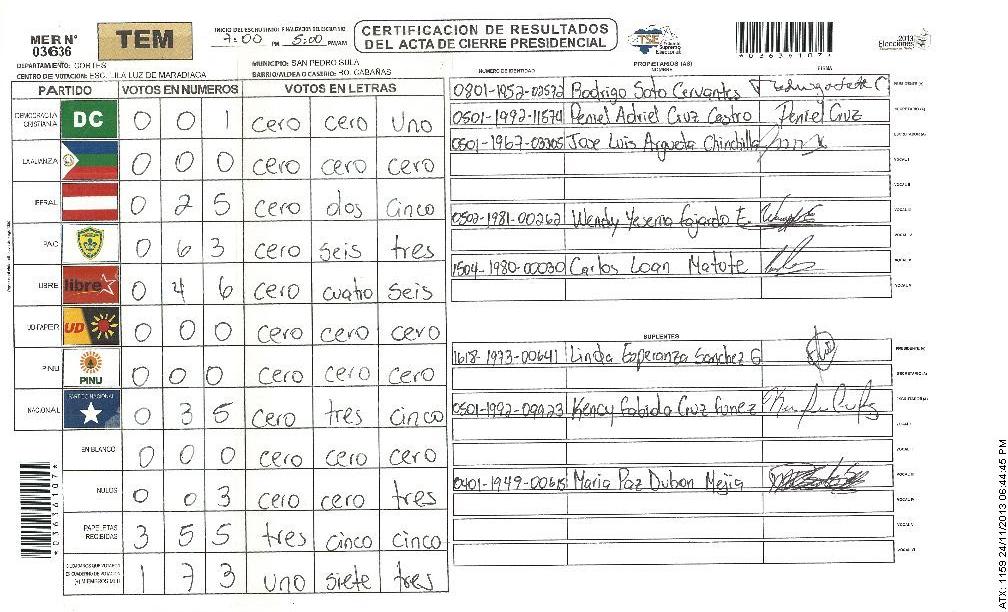 MER N° 03636
TEM
INICIO DEL ESCRUTINIO FINALIZACION DEL ESCRUTINIO
7:00 PM 5:00 PM/AM
CERTIFICACION DE RESULTADOS
DEL ACTA DE CIERRE PRESIDENCIAL
TSE Tribunal Supremo Electoral
*03636107*
2013 Elecciones
DEPARTAMENTO: CORTES
MUNICIPIO: SAN PEDRO SULA
CENTRO DE VOTACION: ESC. LILA LUZ DE MARADIAGA
BARRIO/ALDEA O CASERIO: BO. CABAÑAS
PARTIDO VOTOS EN NUMEROS VOTOS EN LETRAS
DEMOCRACIA CRISTIANA DC 0 0 1 cero cero uno
LA ALIANZA 0 0 0 cero cero cero
LIBERAL 0 2 5 cero dos cinco
PAC 0 6 3 cero seis tres
LIBRE libre 0 4 6 cero cuatro seis
UD FAPER UD 0 0 0 cero cero cero
PINU PINU 0 0 0 cero cero cero
NACIONAL PARTIDO NACIONAL 0 3 5 cero tres cinco
EN BLANCO 0 0 0 cero cero cero
NULOS 0 0 3 cero cero tres
PAPELETAS RECIBIDAS 3 5 5 tres cinco cinco
CIUDADANOS QUE VOTARON 1 7 3 uno siete tres
*03636107*
PROPIETARIOS (AS)
NUMERO DE IDENTIDAD NOMBRE FIRMA
0801-1952-02572 Rodrigo Soto Cervantes PRESIDENTE (A)
0501-1992-11574 Peniel Adriel Cruz Castro Peniel Cruz SECRETARIO (A)
0501-1967-03305 Jose Luis Argueta Chinchilla ESCRUTADOR (A)
VOCAL I
VOCAL II
0502-1981-00262 Wendy Yesenia Fajardo E. VOCAL III
VOCAL IV
1504-1980-00030 Carlos Loan Matute VOCAL V
VOCAL VI
SUPLENTES
1618-1973-00641 Linda Esperanza Sanchez G PRESIDENTE (A)
SECRETARIO (A)
0501-1992-09923 Kency Fabiola Cruz Funez ESCRUTADOR (A)
VOCAL I
VOCAL II
0401-1949-00615 Maria Paz Dubon Mejia VOCAL III
VOCAL IV
VOCAL V
VOCAL VI
ATX: 1159 24/11/2013 06:44:45 PM